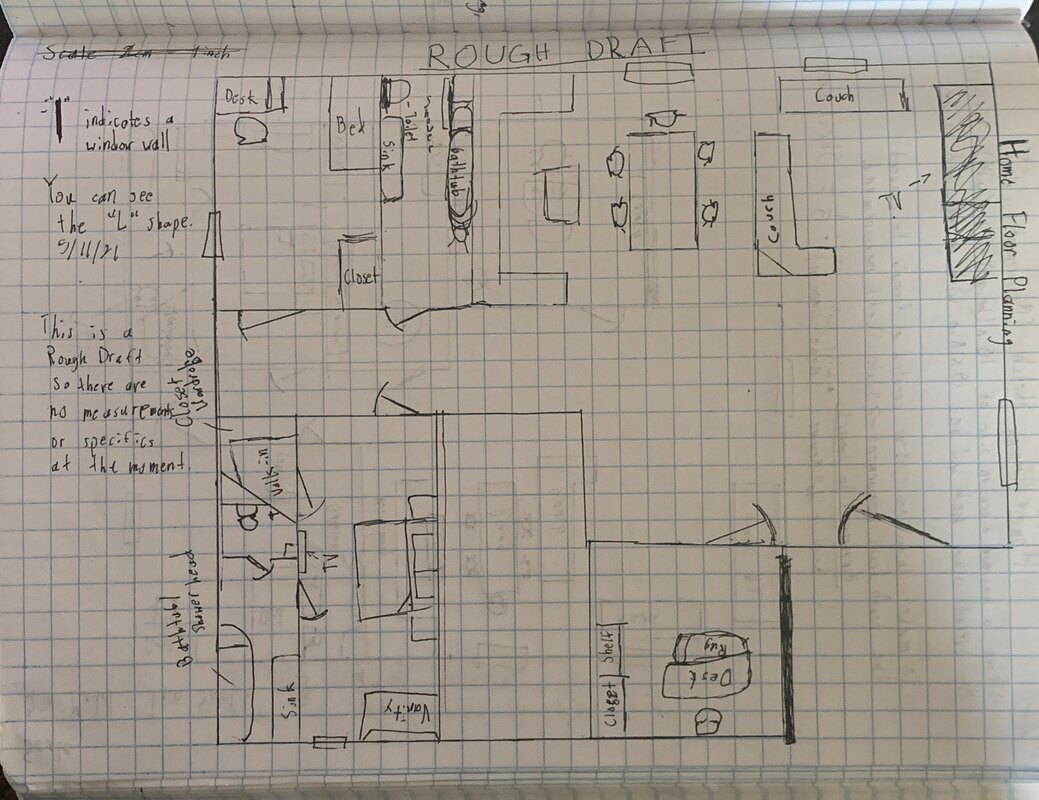 Scale 1cm 1inch
ROUGH DRAFT
"I"
indicates a
window wall
You can see
the "L" shape.
5/11/21
This is a
Rough Draft
so there are
no measurements
or specifics
at the moment.
Home Floor Planning
Desk
Bed
Toilet
Sink
bathtub
Closet
Couch
Couch
TV
Closet
Wardrobe
Walk-in
TV
Bathtub/
Shower head
Sink
Vanity
Closet
Shelf
Rug
Desk